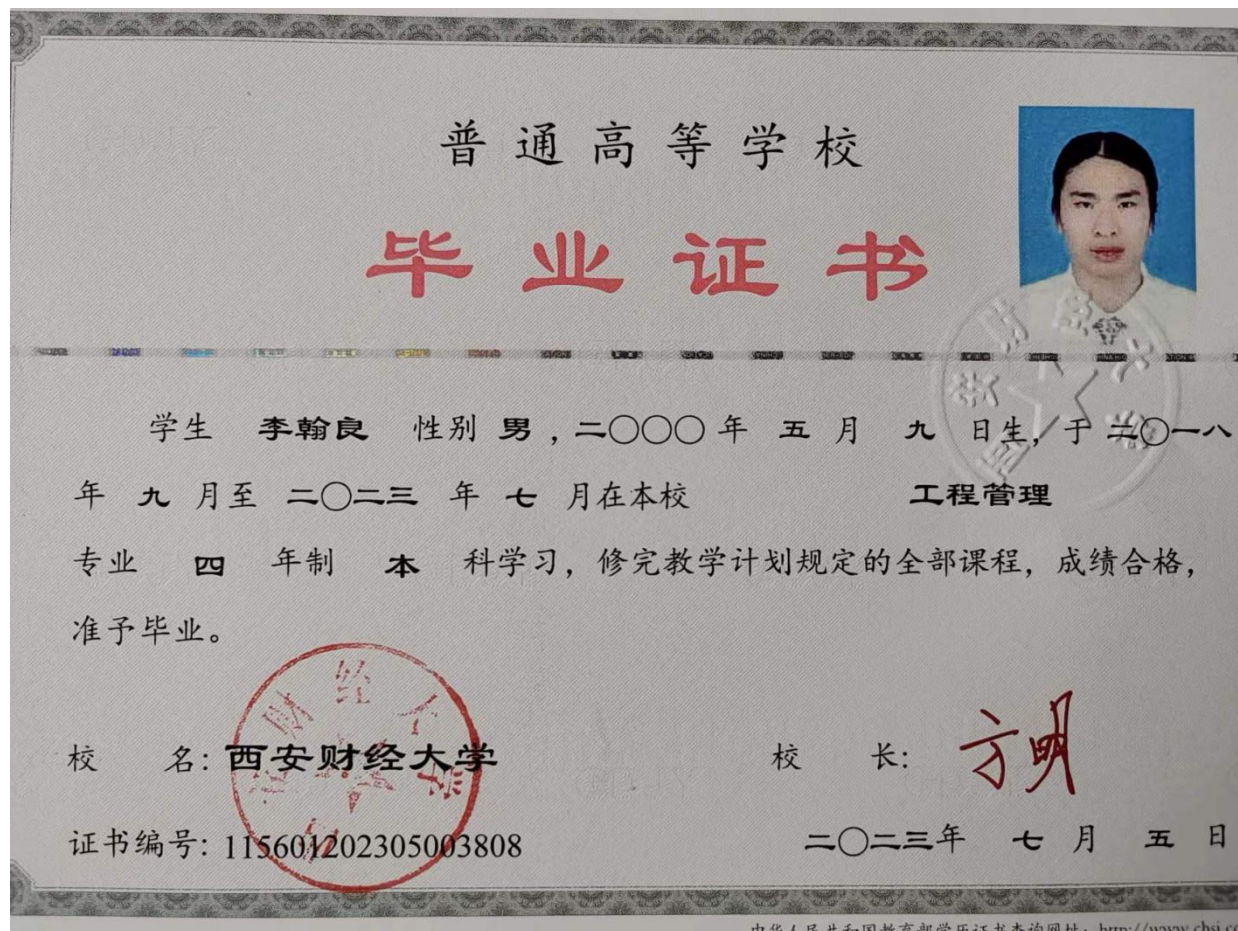 普通高等学校
毕业证书
学生 李翰良 性别 男，二〇〇〇年 五 月 九 日生，于 二〇一八
年 九 月至 二〇二三 年 七 月在本校 工程管理
专业 四 年制 本 科学习，修完教学计划规定的全部课程，成绩合格，
准予毕业。
校 名：西安财经大学 校 长：方明
证书编号：115601202305003808 二〇二三年 七 月 五 日
中华人民共和国教育部学历证书查询网址：http://www.chsi.co